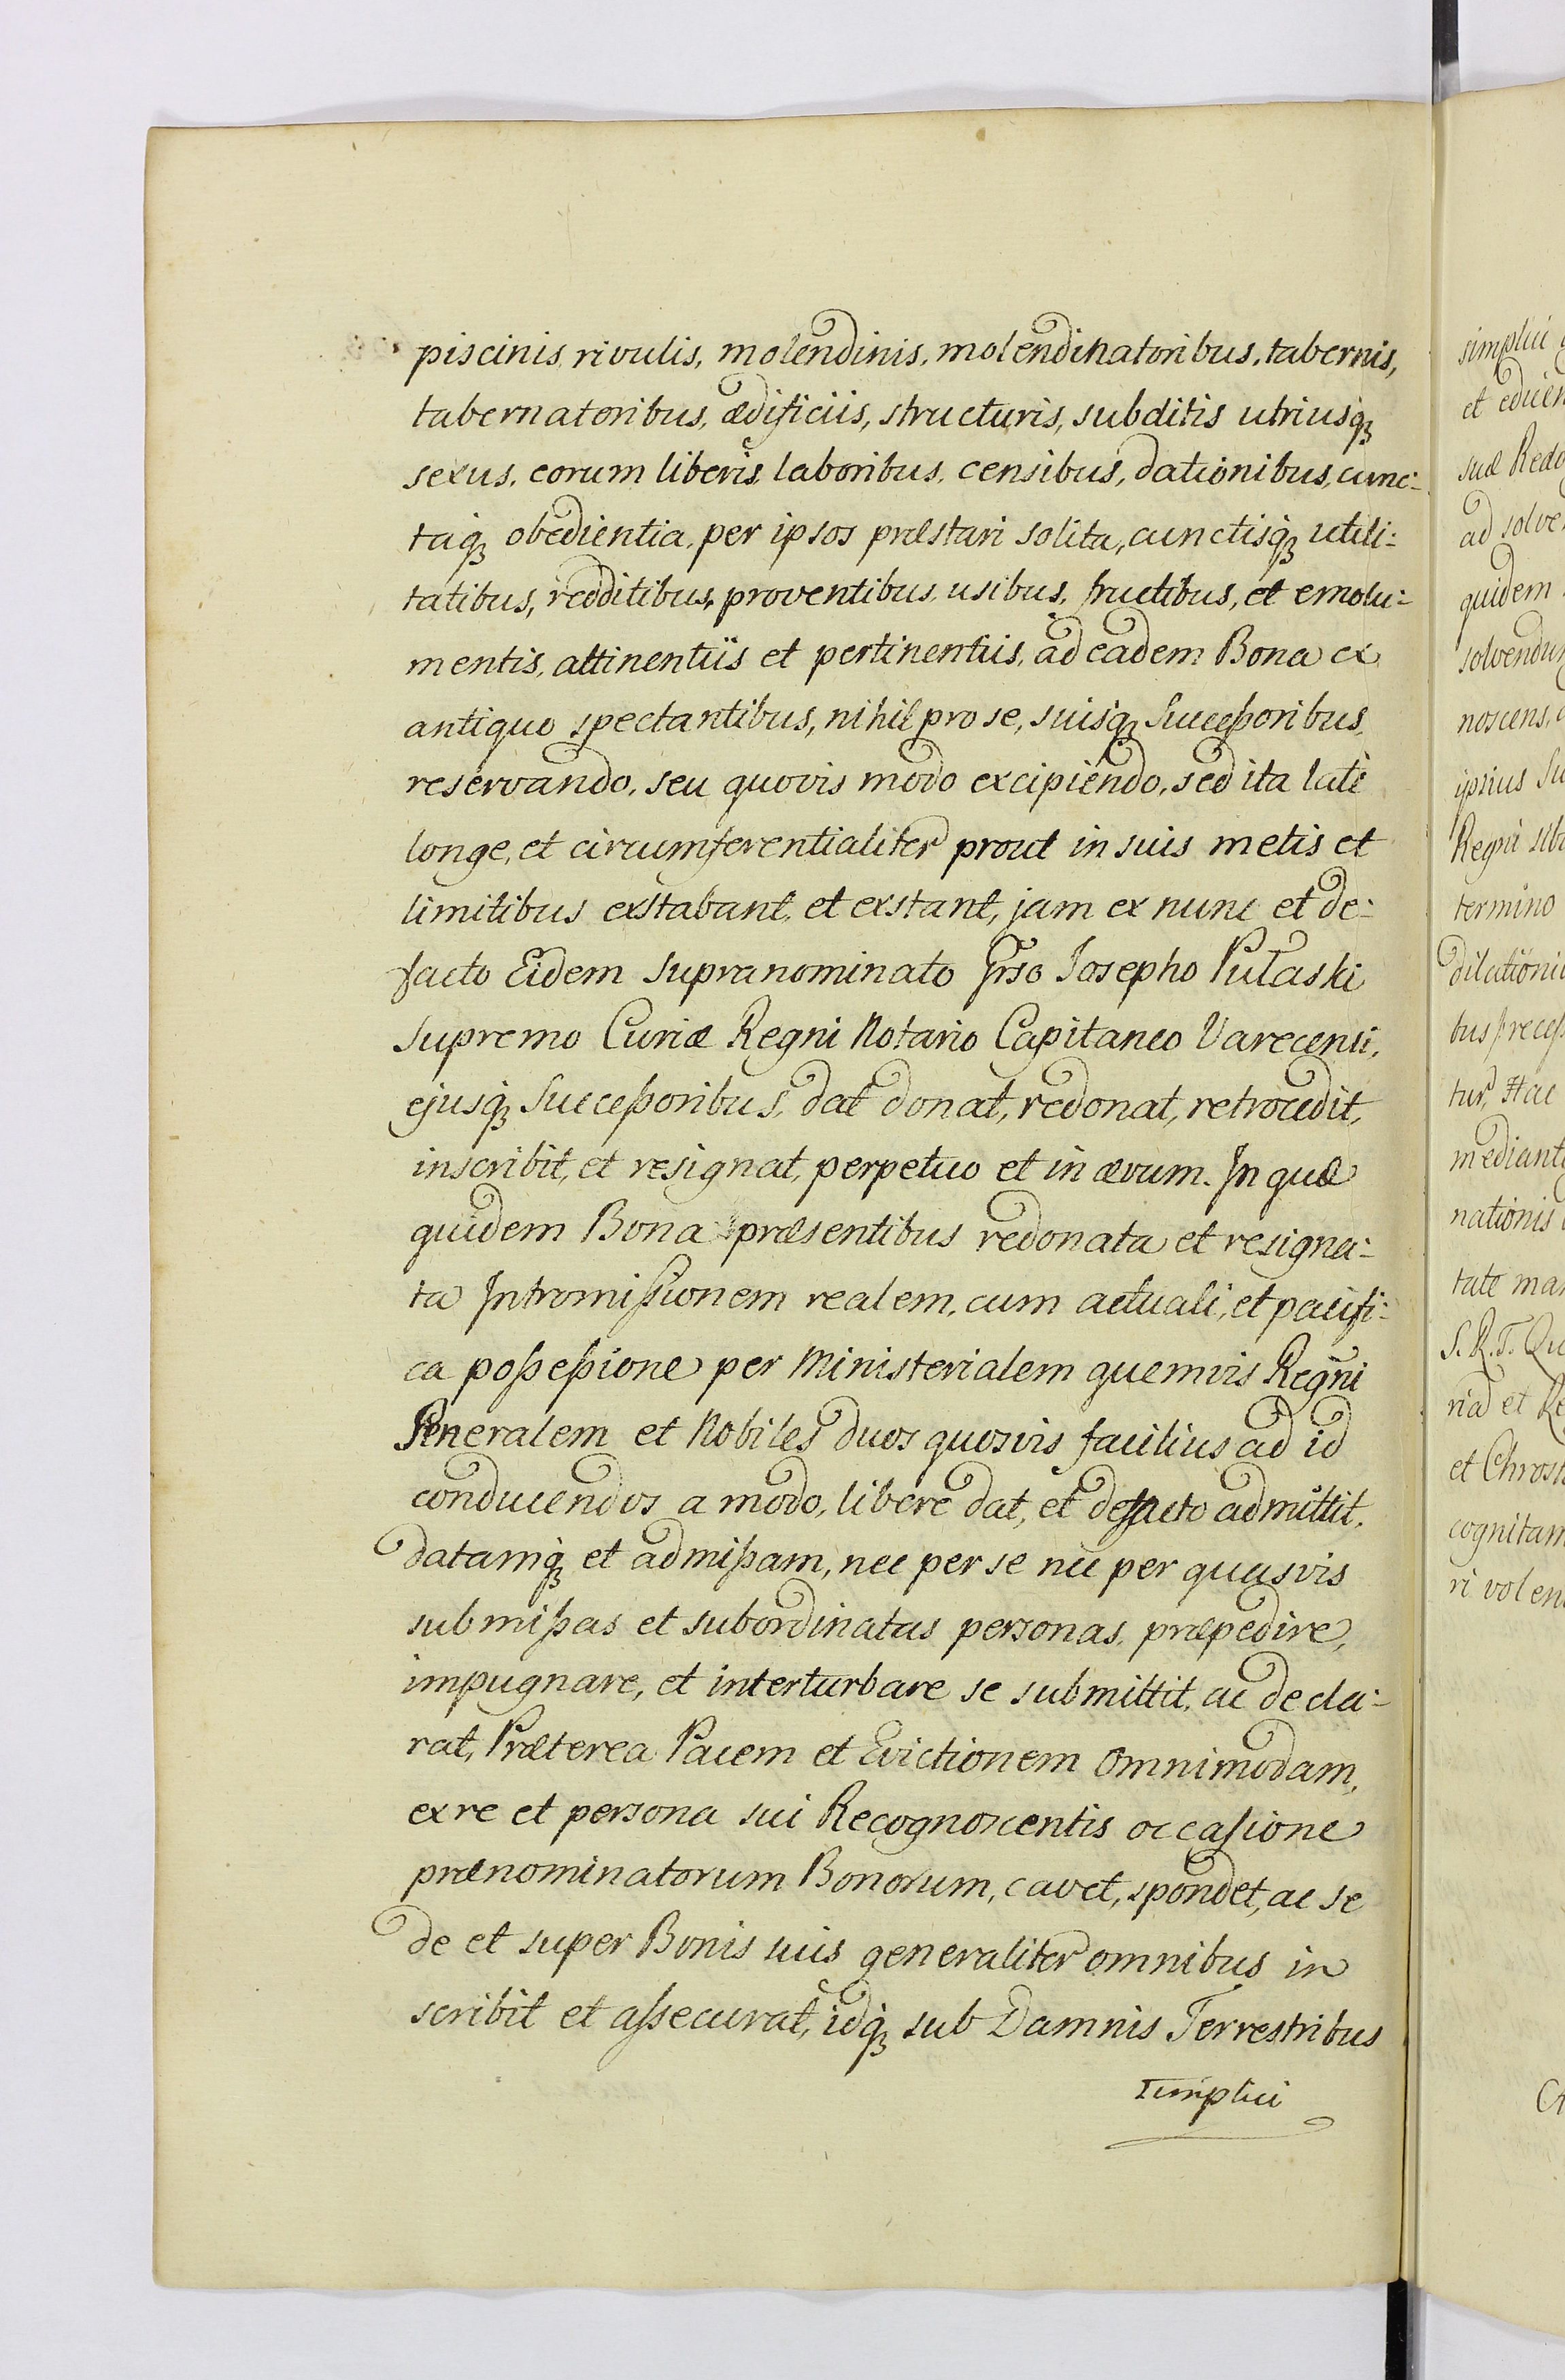 piscinis, rivulis, molendinis, molendinatoribus, tabernis,
tabernatoribus, ædificiis, structuris, subditis utriusq́
sexus, eorum liberis, laboribus, censibus, dationibus, cunc:
taq́ obedientia, per ipsos præstari solita, cunctisq́ utili:
tatibus, redditibus, proventibus, usibus, fructibus, et emolu:
mentis, attinentiis et pertinentiis, ad eadem Bona ex
antiquo spectantibus, nihil pro se, suisq́ Successoribus,
reservando, seu quovis modo excipiendo, sed ita latè
longe, et circumferentialiter prout in suis metis et
limitibus exstabant, et exstant, jam ex nunc et de:
facto Eidem supranominato Grso Josepho Pułaski
supremo Curiæ Regni Notario Capitaneo Varecensi,
ejusq́ Successoribus, dat donat, redonat, retrocedit,
inscribit, et resignat, perpetuo et in ævum. In quæ
quidem Bona præsentibus redonata et resigna:
ta Intromissionem realem, cum actuali, et pacifi:
ca possessione per Ministerialem quemvis Regñi
Generalem et Nobiles duos quosvis facilius ad id
conducendos a modo, libere dat, et defacto admittit,
datamq́ et admissam, nec per se nec per quasvis
submissas et subordinatas personas, præpedire,
impugnare, et interturbare se submittit, ac decla:
rat, Præterea Pacem et Evictionem omnimodam,
ex re et persona sui Recognoscentis occasione
prænominatorum Bonorum, cavet, spondet, ac se
de et super Bonis suis generaliter omnibus in
scribit et assecurat, idq́ sub Damnis Terrestribus
simplici
simplici
et
suæ
ad
quidem
noscens,
ipsius
Regni
termino
tur, Hac
nationis
tate
S. R. T.
et
cognitam